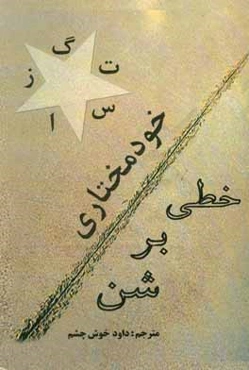 ت
گ
ز
س
ا
خودمختاری
خطی
بر
شن
مترجم: داود خوش چشم